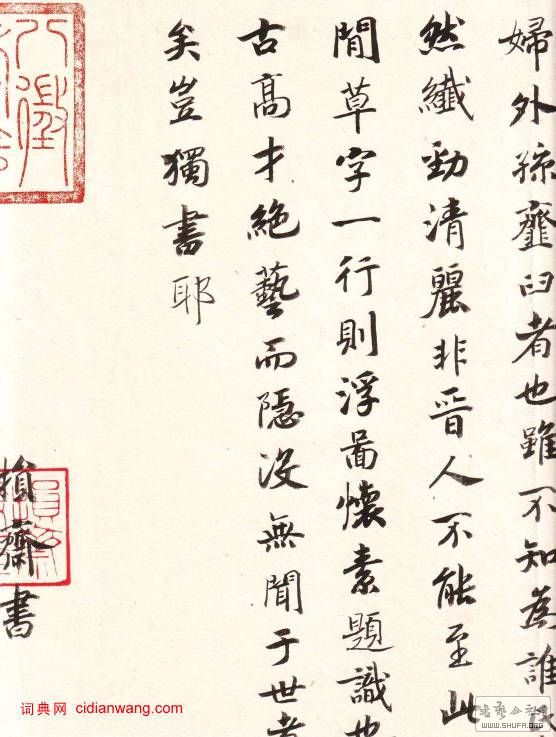 婦外孫齏臼者也雖不知為誰
然纖勁清麗非晉人不能至此
閒草字一行則浮啚懷素題識也
古高才絕藝而隱没無聞于世者
矣豈獨書耶
損齋書
損齋
词典网 cidianwang.com
书艺公社
WWW.SHUFA.ORG